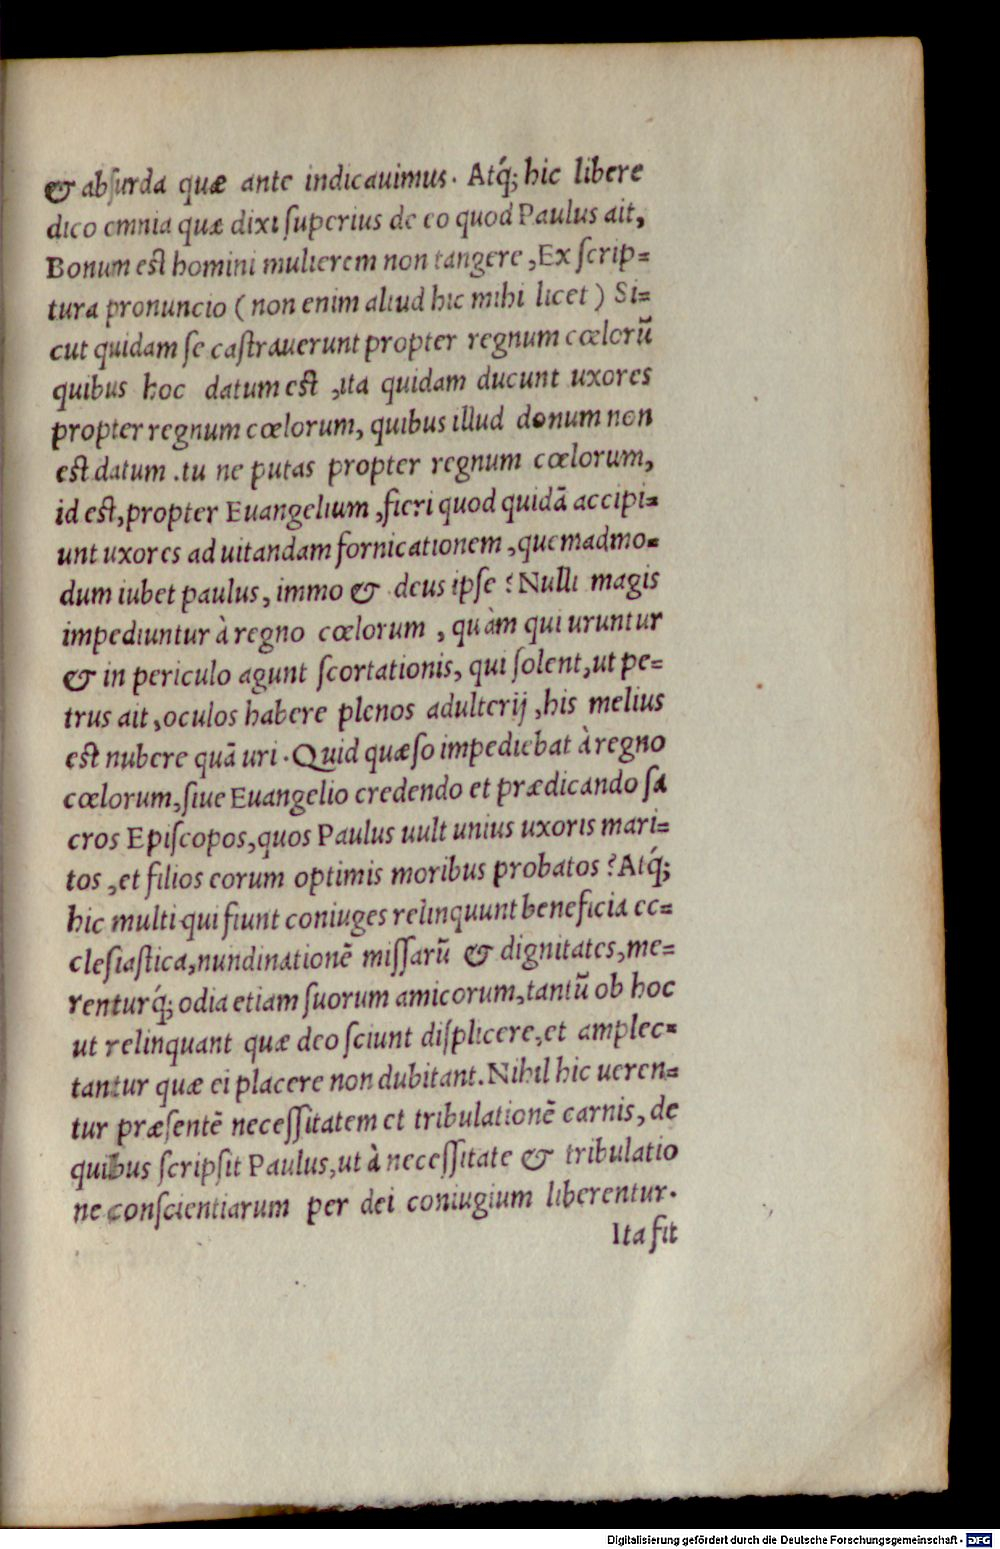 & absurda quæ ante indicauimus. Atq́; hic libere
dico omnia quæ dixi ſuperius de eo quod Paulus ait,
Bonum eſt homini mulierem non tangere, Ex ſcrip=
tura pronuncio (non enim aliud hic mihi licet) Si=
cut quidam ſe caſtrauerunt propter regnum cœlorū
quibus hoc datum eſt, ita quidam ducunt uxores
propter regnum cœlorum, quibus illud donum non
eſt datum. tu ne putas propter regnum cœlorum,
id eſt, propter Euangelium, fieri quod quidā accipi=
unt uxores ad uitandam fornicationem, quemadmo=
dum iubet paulus, immo & deus ipſe? Nulli magis
impediuntur à regno cœlorum, quàm qui uruntur
& in periculo agunt ſcortationis, qui ſolent, ut pe=
trus ait, oculos habere plenos adulterij, his melius
eſt nubere quā uri. Quid quæſo impediebat à regno
cœlorum, ſiue Euangelio credendo et prædicando ſa
cros Epiſcopos, quos Paulus uult unius uxoris mari=
tos, et filios eorum optimis moribus probatos? Atq́;
hic multi qui fiunt coniuges relinquunt beneficia ec=
cleſiaſtica, nundinationē miſſarū & dignitates, me=
renturq́; odia etiam ſuorum amicorum, tantū ob hoc
ut relinquant quæ deo ſciunt diſplicere, et amplec=
tantur quæ ei placere non dubitant. Nihil hic ueren=
tur præſentē neceſſitatem et tribulationē carnis, de
quibus ſcripſit Paulus, ut à neceſſitate & tribulatio
ne conſcientiarum per dei coniugium liberentur.
Ita fit
Digitalisierung gefördert durch die Deutsche Forschungsgemeinschaft - DFG